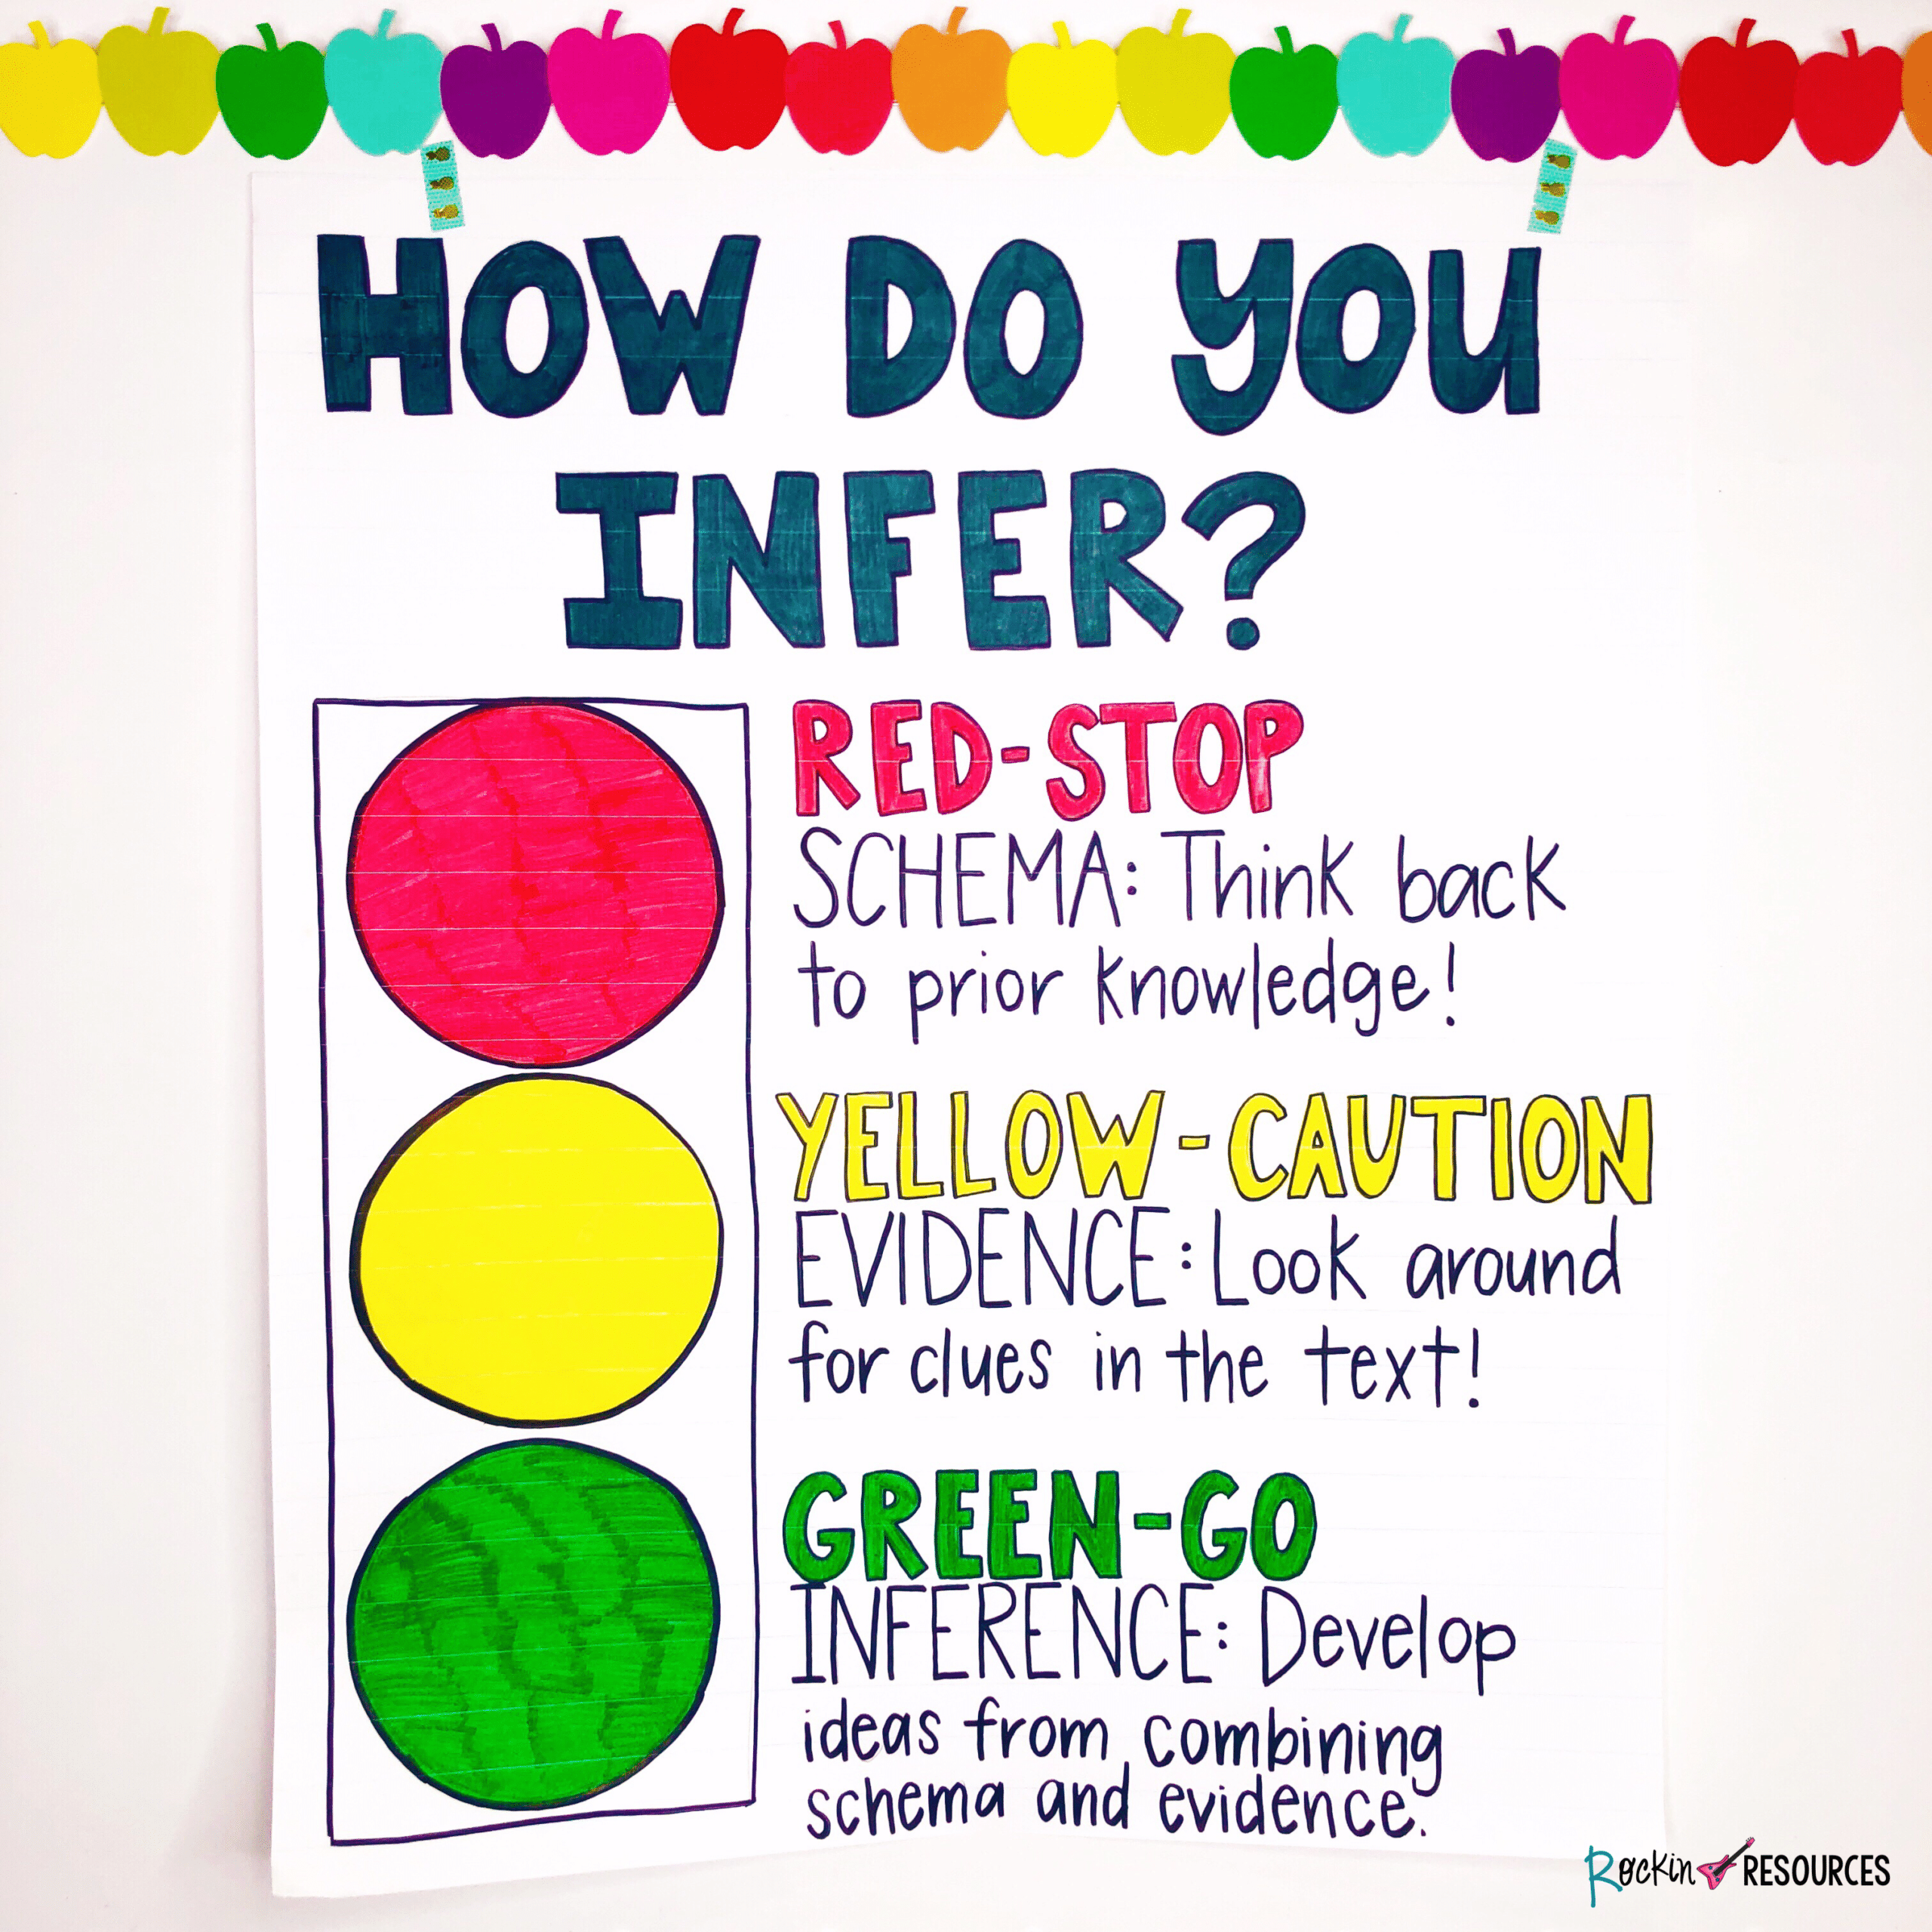 HOW DO YOU
INFER?
RED-STOP
SCHEMA: Think back
to prior knowledge!
YELLOW-CAUTION
EVIDENCE: Look around
for clues in the text!
GREEN-GO
INFERENCE: Develop
ideas from combining
schema and evidence.
Rockin RESOURCES